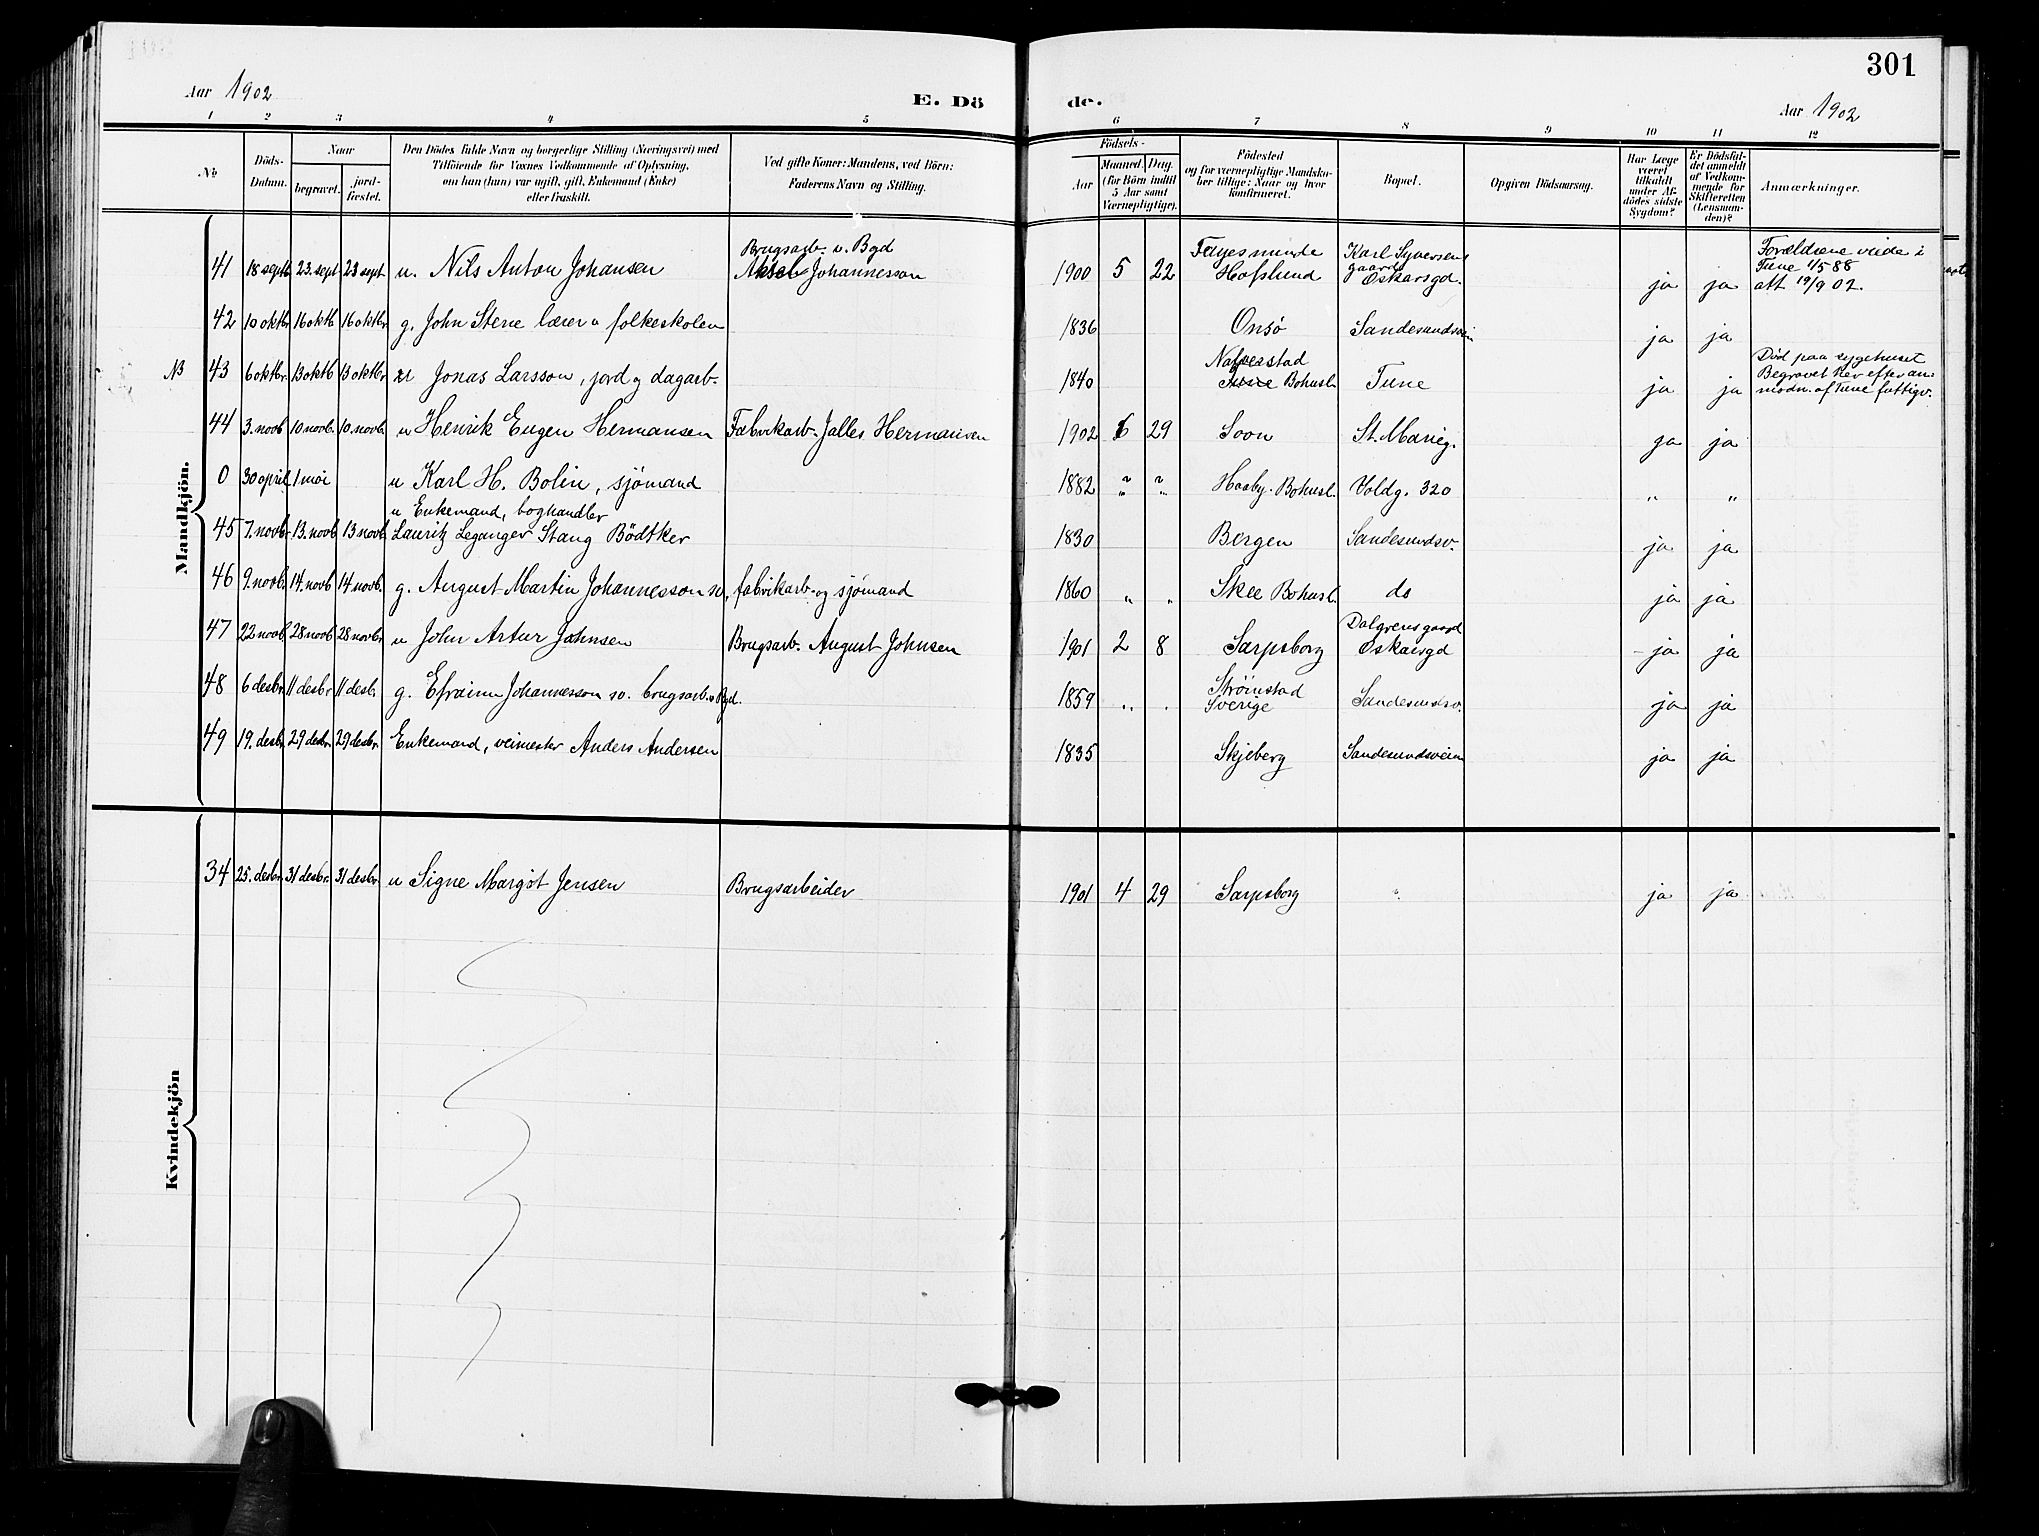 301
Aar 1902
E. Dö
de.
Aar 1902
1 2 3 4 5 6 7 8 9 10 11 12
No
Döds-
Datum.
Naar
begravet.
jord-
fæstet.
Den Dödes fulde Navn og borgerlige Stilling (Næringsvei) med
Tilföiende for Voxnes Vedkommende af Oplysning,
om han (hun) var ugift, gift, Enkemand (Enke)
eller fraskilt.
Ved gifte Koner: Mandens, ved Börn:
Faderens Navn og Stilling.
Födsels-
Aar
Maaned. Dag.
(for Börn indtil
5 Aar samt
Værnepligtige).
Födested
og for værnepligtige Mandska-
ber tillige: Naar og hvor
konfirmeret.
Bopæl.
Opgiven Dödsaarsag.
Har Læge
været
tilkaldt
under Af-
dödes sidste
Sygdom?
Er Dödsfal-
det anmeldt
af Vedkom-
mende for
Skifteretten
(Lensman-
den)?
Anmærkninger.
Mandkjön.
Brugsarb. v. Bgd
41 18 septb 23. sept 23 sept. u. Nils Anton Johansen Aksel Johannesson 1900 5 22 Fayesminde
Hafslund Karl Syversens
gaard
Oskarsgd. ja ja Forældrene viede i
Tune 1/5 88
att 19/9 02.
42 10 oktbr 16 oktb 16 oktbr. g. John Stene lærer v folkeskolen 1836 Onsö Sandesundsvein ja ja
NB 43 6 oktbr. 13 oktb 13 oktbr. u Jonas Larsson, jord og dagarb. 1840 Naverstad
Tune Bohusl. Tune ja ja Död paa sygehuset
Begravet her efter an-
modn. af Tune fattigv.
44 3. novb 10 novb. 10 novb. u Henrik Eugen Hermansen Fabrikarb. Jalles Hermansen 1902 6 29 Soon St. Marieg. ja ja
0 30 april 1 mai u Karl H. Bolin, sjømand 1882 " " Haaby. Bohusl. Voldg. 320 " "
u Enkemand, boghandler
45 7. novbr. 13. novb 13 novb. Lauritz Leganger Stang Bödtker 1830 Bergen Sandesundsv. ja ja
46 9. novb. 14. novb 14 novb. g. August Martin Johannesson sv. fabrikarb. og sjømand 1860 " " Skee Bohusl. do ja ja
47 22 novb 28 novb 28 novbr. u John Artur Johnsen Brugsarb. August Johnsen 1901 2 8 Sarpsborg Dalgrensgaard
Oskarsgd ja ja
48 6 desbr 11 desbr 11 desb. g. Efraim Johannesson sv. brugsarb. v Bgd. 1859 " " Strömstad
Sverige Sandesundsv. ja ja
49 19. desb. 29 desbr. 29 desbr. Enkemand, veimester Anders Andersen 1835 Skjeberg Sandesundsveien ja ja
Kvindekjön
34 25. desbr. 31 desbr. 31 desbr. u Signe Margöt Jensen Brugsarbeider 1901 4 29 Sarpsborg " ja ja